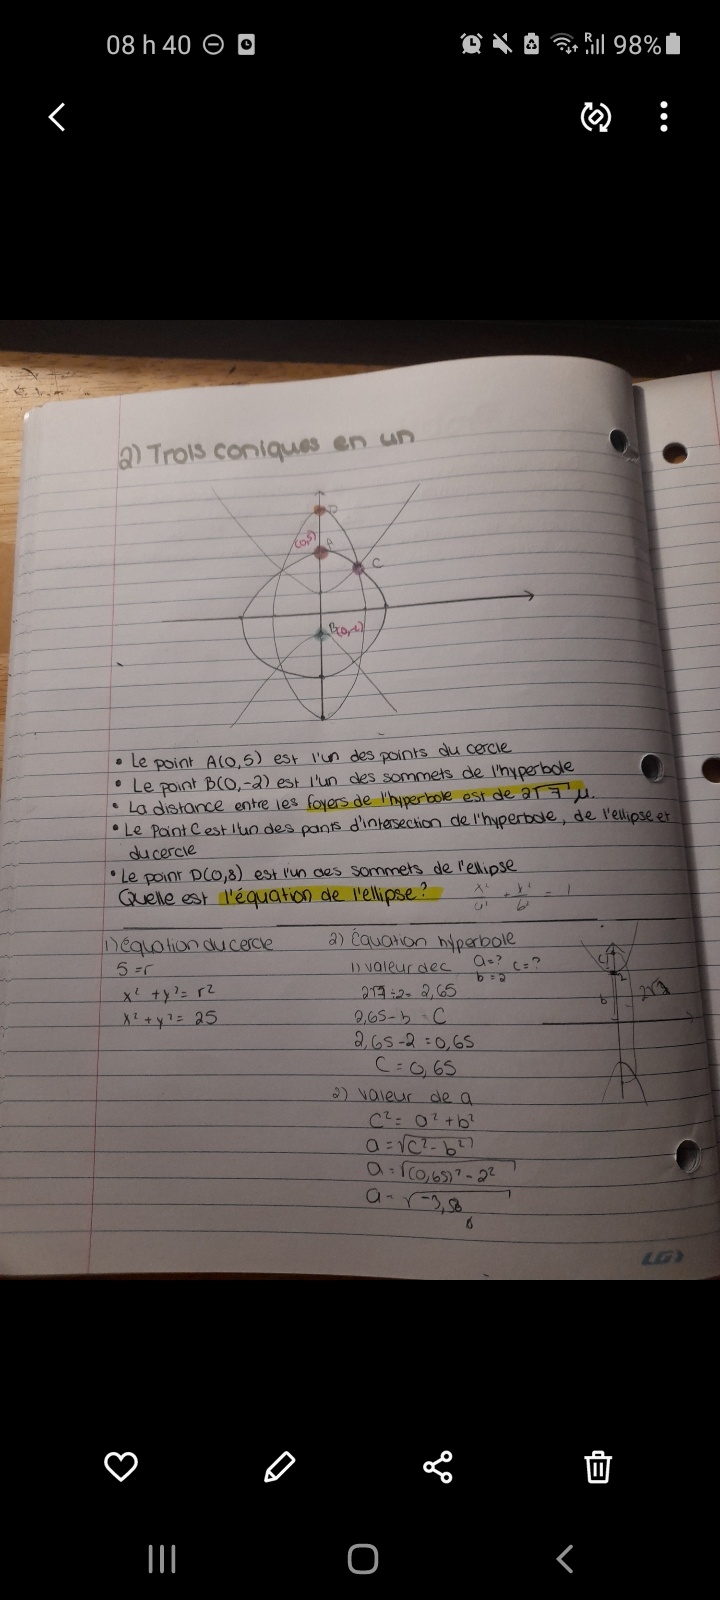 08 h 40
98%
2) Trois coniques en un
D
(0,5) A
C
B(0,-2)
• Le point A(0,5) est l'un des points du cercle
• Le point B(0,-2) est l'un des sommets de l'hyperbole
• La distance entre les foyers de l'hyperbole est de 2√7 μ.
• Le Point C est l'un des points d'intersection de l'hyperbole, de l'ellipse et
du cercle
• Le point D(0,8) est l'un des sommets de l'ellipse
Quelle est l'équation de l'ellipse? x²/a² + y²/b² = 1
1) équation du cercle
5 = r
x² + y² = r²
x² + y² = 25
2) Équation hyperbole
1) valeur de c a=? c=?
b=2
2√7 ÷ 2 = 2,65
2,65 - b = C
2,65 - 2 = 0,65
C = 0,65
2) valeur de a
c² = a² + b²
a = √(c² - b²)
a = √((0,65)² - 2²
a = √-3,58
C
2
b
2√7